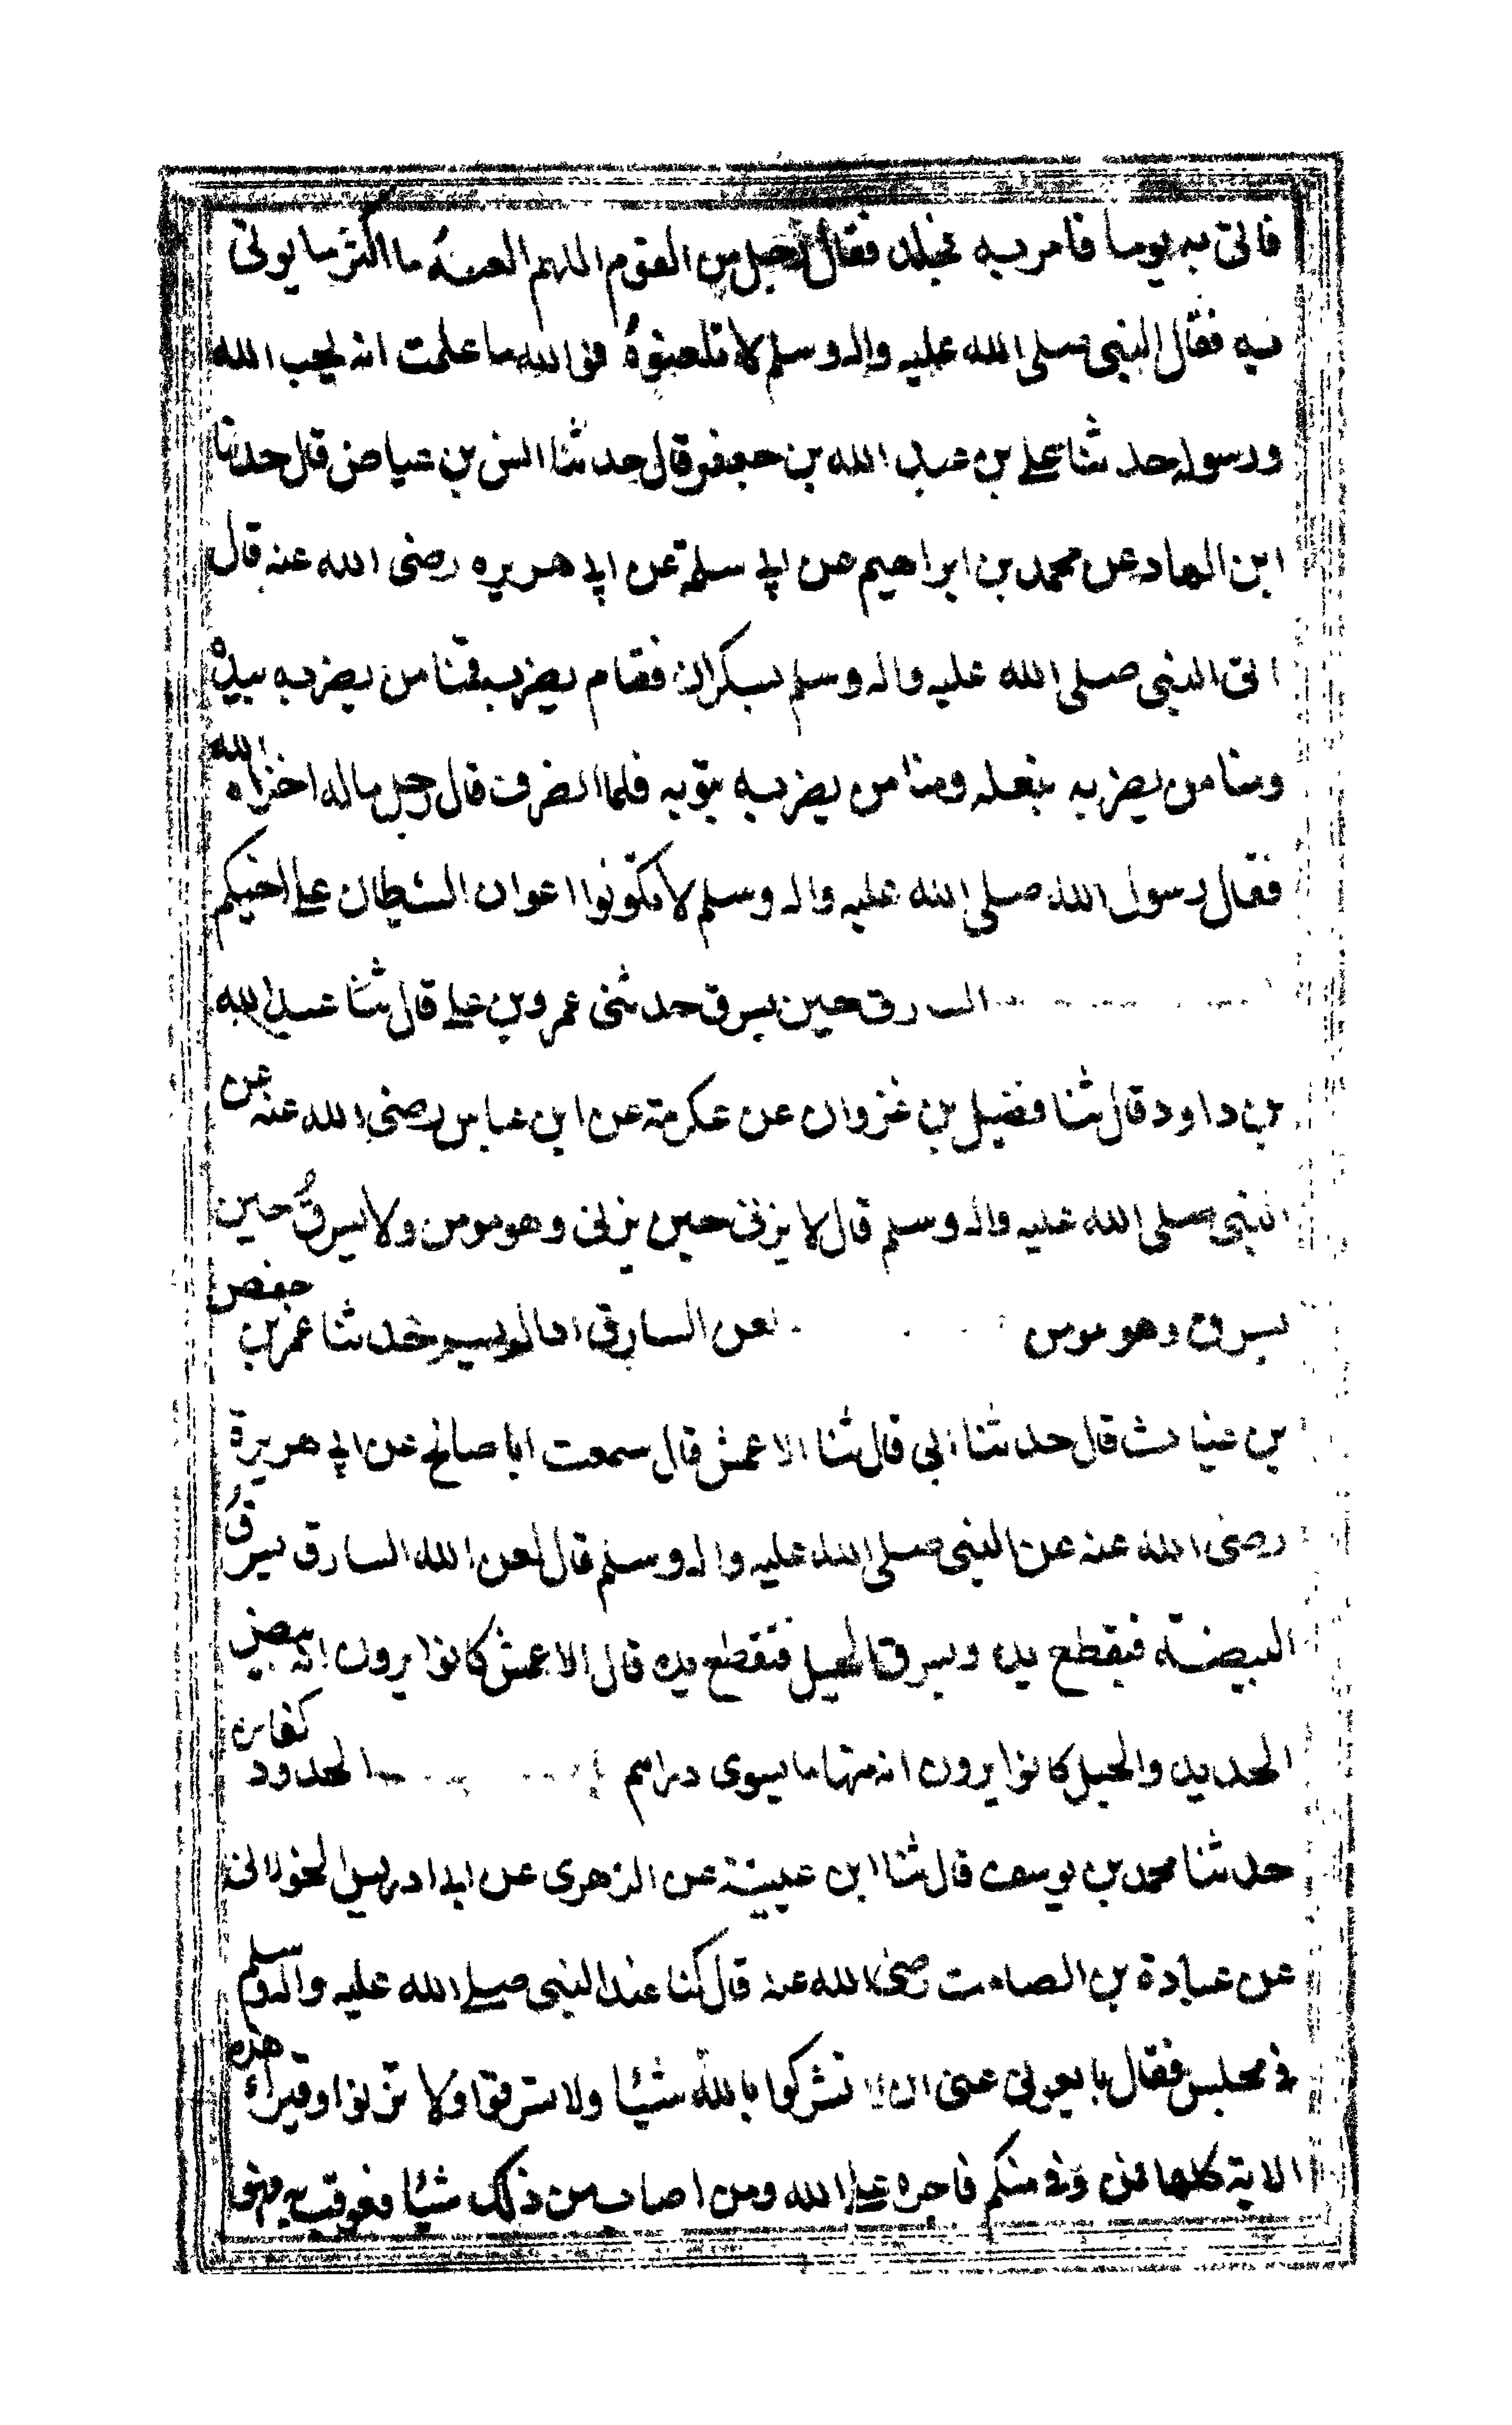 فاتى به يوما فامر به فجلد فقال رجل من القوم اللهم العنه ما اكثر ما يوتى
فيه فقال النبى صلى الله عليه واله وسلم لا تلعنوه فوالله ما علمت انه يحب الله
ورسوله حدثنا على بن عبد الله بن جعفر قال حدثنا انس بن عياض قال حدثنا
ابن الهاد عن محمد بن ابراهيم عن ابى سلمة عن ابى هريره رضى الله عنه قال
اتى النبى صلى الله عليه واله وسلم بسكران فقام يضربه فمنا من يضربه بيده
ومنا من يضربه بنعله ومنا من يضربه بثوبه فلما انصرف قال رجل ماله اخزاه الله
فقال رسول الله صلى الله عليه واله وسلم لا تكونوا اعوان الشيطان على اخيكم
السارق حين يسرق حدثنى عمرو بن على قال ثنا عبد الله
بن داود قال ثنا فضيل بن غزوان عن عكرمة عن ابن عباس رضى الله عنه عن
النبى صلى الله عليه واله وسلم قال لا يزنى حين يزنى وهو مومن ولا يسرق حين
يسرق وهو مومن لعن السارق اذا لم يسم حدثنا عمر بن حفص
بن غياث قال حدثنا ابى قال ثنا الاعمش قال سمعت ابا صالح عن ابى هريرة
رضى الله عنه عن النبى صلى الله عليه واله وسلم قال لعن الله السارق يسرق
البيضة فيقطع يده ويسرق الحبل فتقطع يده قال الاعمش كانوا يرون انه بيض
الحديد والحبل كانوا يرون انه منها ما يسوى دراهم الحدود كفارة
حدثنا محمد بن يوسف قال ثنا ابن عيينة عن الزهرى عن ابى ادريس الخولانى
عن عبادة بن الصامت رضى الله عنه قال كنا عند النبى صلى الله عليه واله وسلم
فى مجلس فقال بايعونى على ان لا تشركوا بالله شيئا ولا تسرقوا ولا تزنوا وقرأ هذه
الاية كلها فمن وفى منكم فاجره على الله ومن اصاب من ذلك شيئا فعوقب به فهو